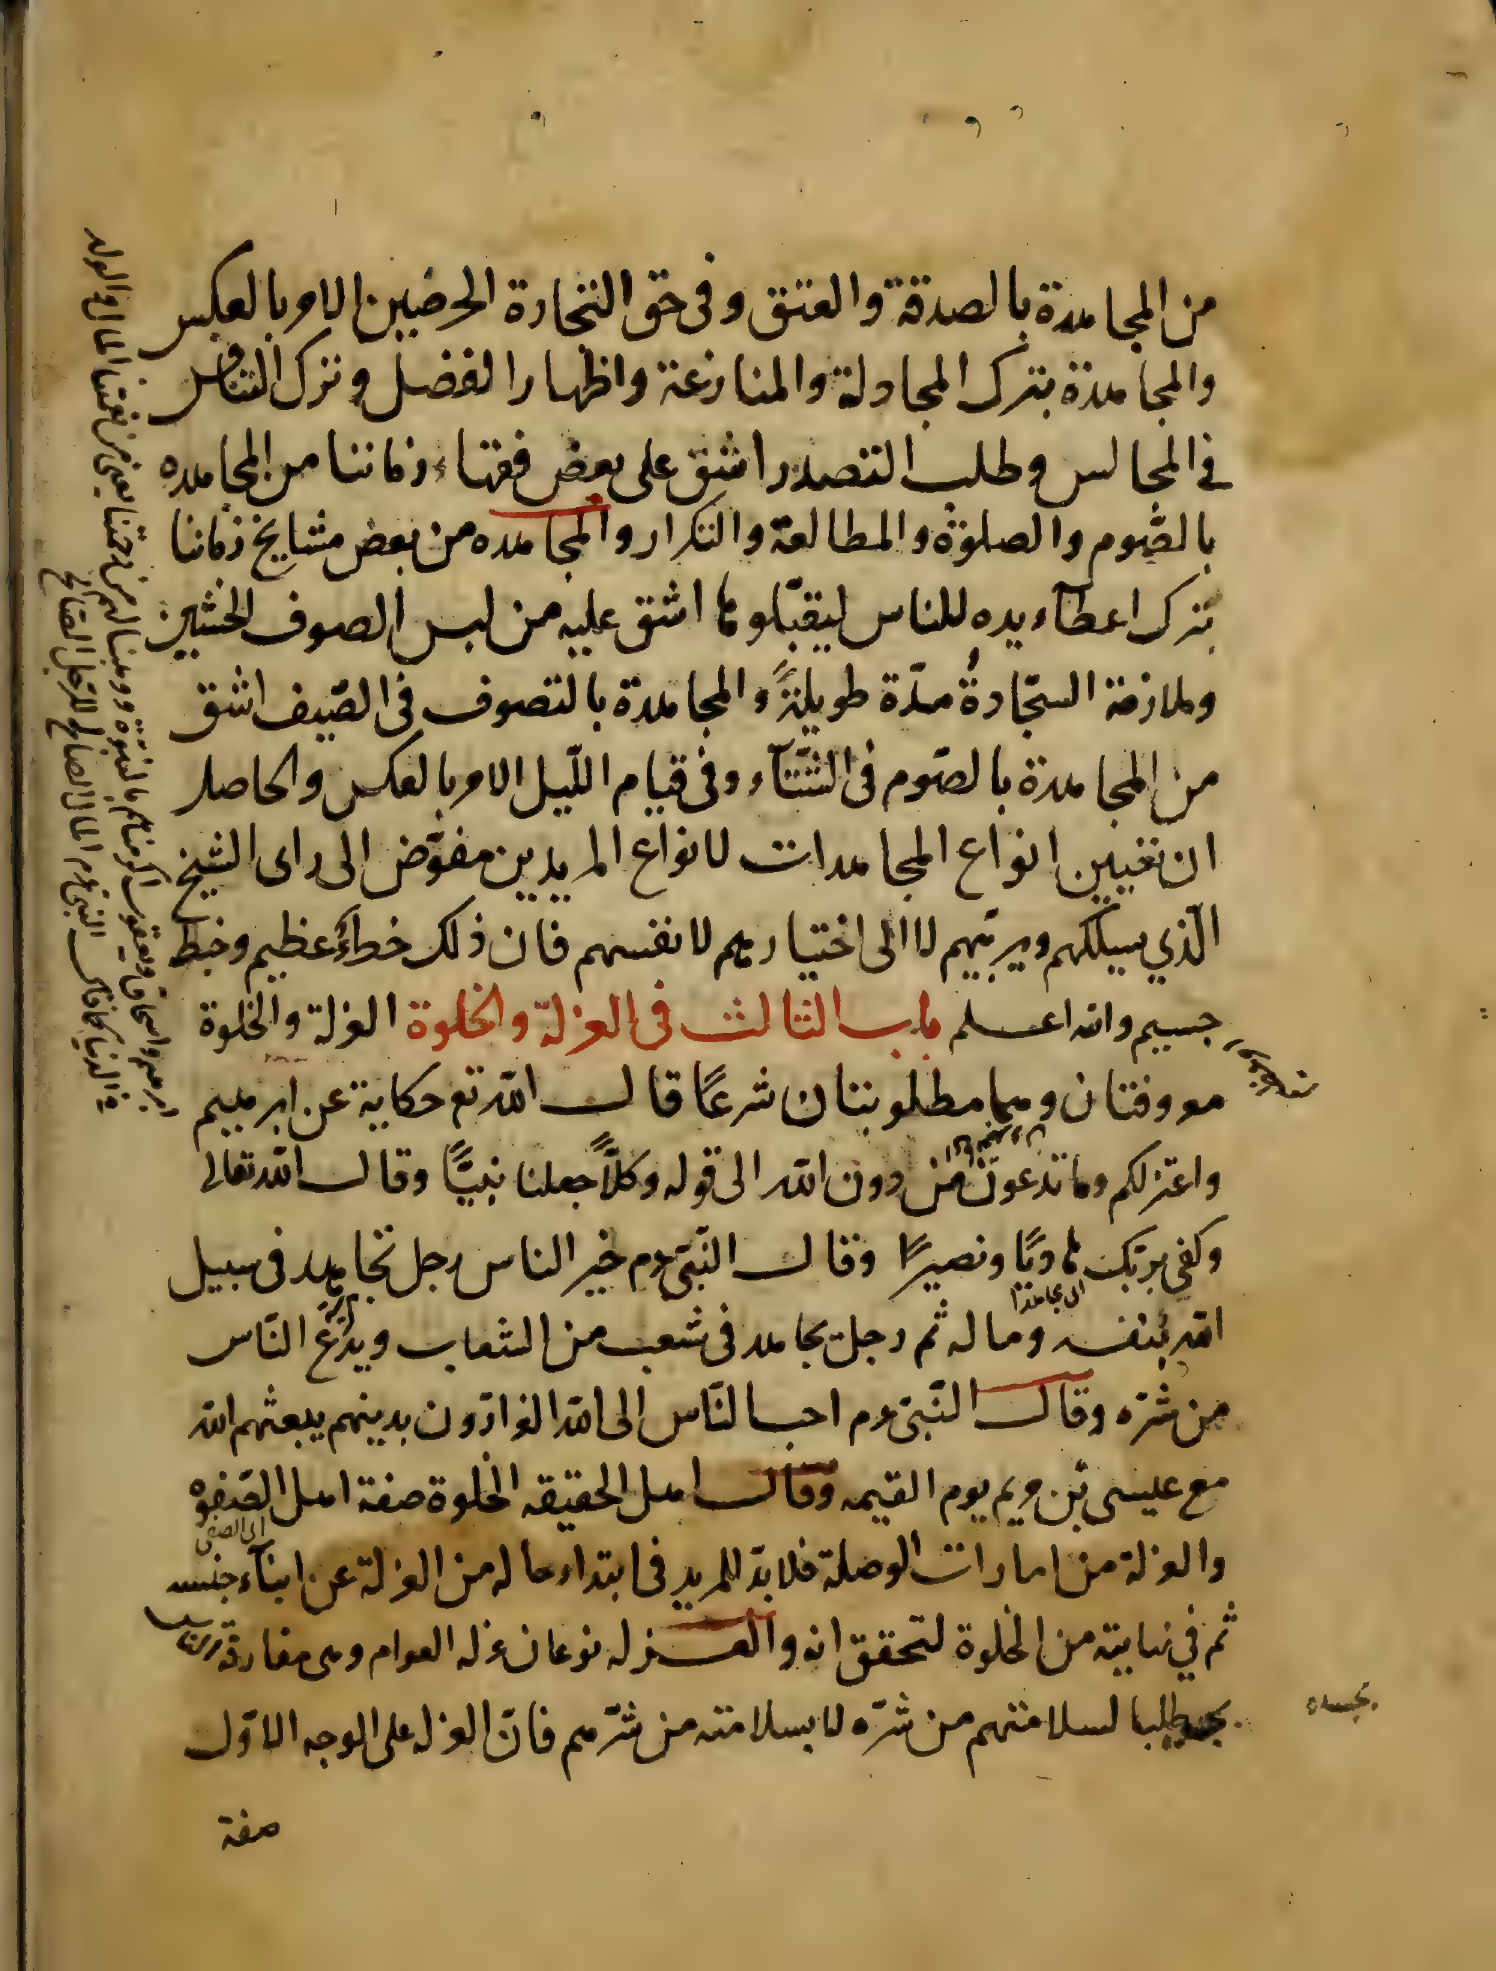 من المجاهدة بالصدقة والعتق وفى حق التجارة الحرضيين الامر بالعكس
والمجاهدة بترك المجادلة والمنازعة واظهار الفضل وترك التنافس
في المجالس وطلب التصدر اشق على بعض فقهاء زماننا من المجاهده
بالصّوم والصلوة والمطالعة والتكرار والمجاهده من بعض مشايخ زماننا
بترك اعطاء يده للناس ليقبّلوها اشق عليه من لبس الصوف الخشين
وملازمة السجّادة مدّة طويلة والمجاهدة بالتصوف فى الصّيف اشق
من المجاهدة بالصّوم فى الشتآء وفى قيام اللّيل الامر بالعكس والحاصل
ان تعيين انواع المجاهدات لانواع المريدين مفوّض الى راى الشيخ
الّذي يسلكهم ويربّيهم لا الى اختيارهم لانفسهم فان ذلك خطاء عظيم وخبط
جسيم والله اعلم باب الثالث فى العزلة والخلوة العزلة والخلوة
معروفتان وهما مطلوبتان شرعًا قال الله تع حكاية عن ابرهيم
واعتزلكم وما تدعون من دون الله الى قوله وكلّاً جعلنا نبيًّا وقال الله تعالى
وكفى بربّك هاديًا ونصيرًا وقال النّبى عم خير الناس رجل تجاهد فى سبيل
الله بنفسه وماله ثم رجل يجاهد فى شعب من الشعاب ويدع النّاس
من شرّه وقال النّبى عم احب النّاس الى الله الفرّارون بدينهم يبعثهم الله
مع عيسى بن مريم يوم القيمه وقال اهل الحقيقه الخلوة صفة اهل الصّفوه
والعزلة من امارات الوصلة فلا بدّ للمريد فى ابتداء حاله من العزلة عن ابنآء جنسه
ثم في نهايته من الخلوة لتحقق انه والعزله نوعان عزله العوام وهى مفارقة الناس
بجسده طلبا لسلامتهم من شرّه لا بسلامته من شرّهم فانّ العزله على الوجه الاوّل
صفة
بجسده